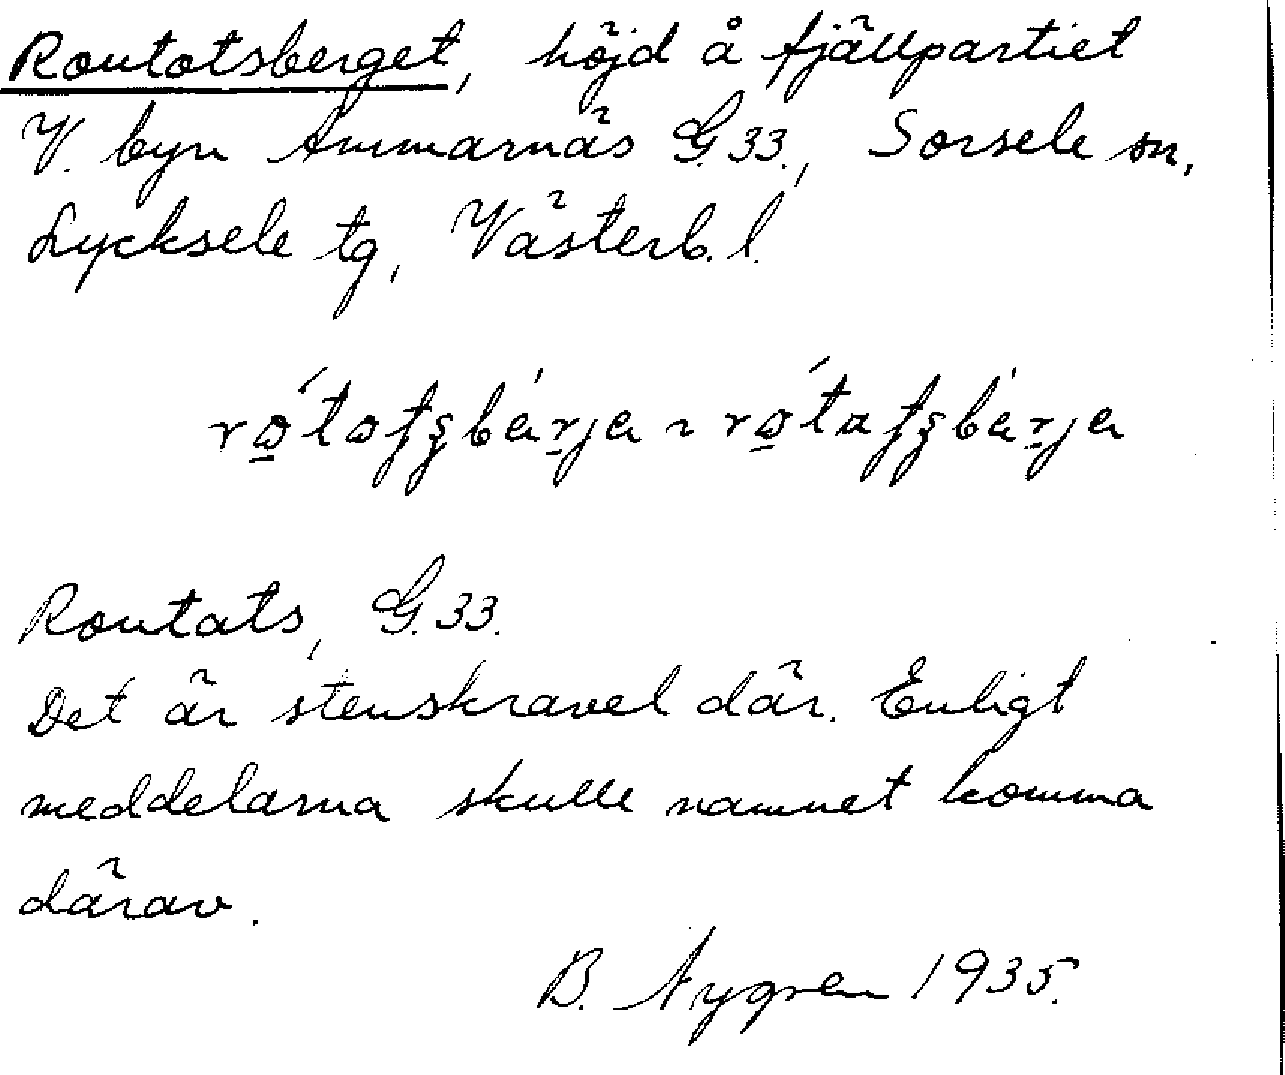 Routotsberget, höjd å fjällpartiet
V. byn Ammarnäs G.33., Sorsele sn,
Lycksele tg, Västerb. l.
Routats, G.33.
Det är stenskravel där. Enligt
meddelarna skulle namnet komma
därav.
B. Nygren 1935.